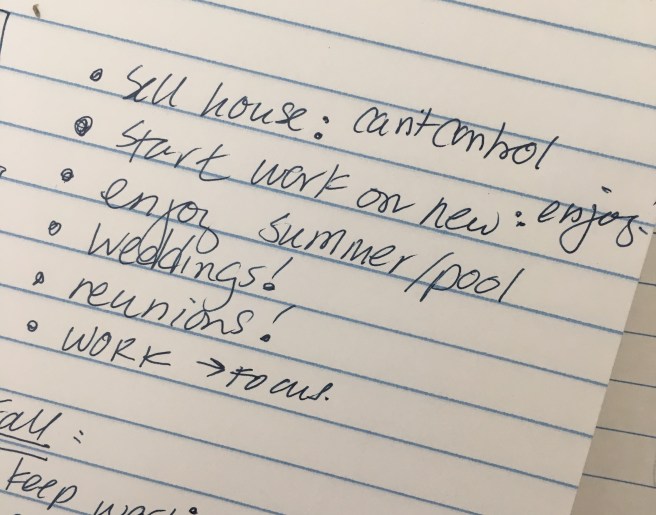 • Sell house: can't control
• Start work on new: enjoy.
• enjoy summer/pool
• weddings!
• reunions!
• WORK → FOCUS.
Fall:
Keep